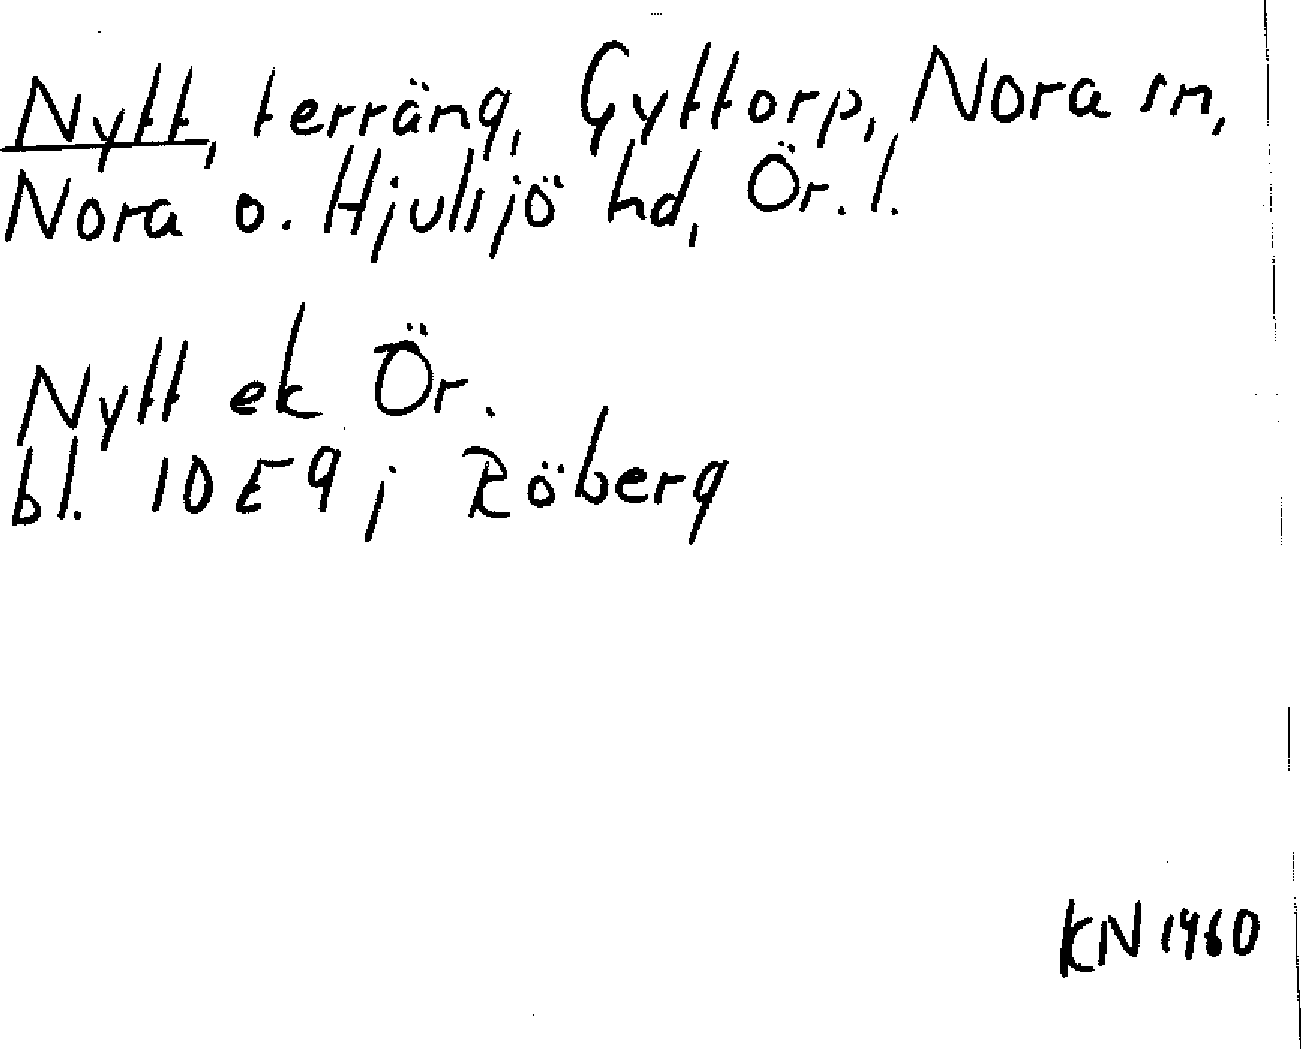 Nytt, terräng, Gyttorp, Nora sn,
Nora o. Hjulsjö hd, Ör. l.
Nytt ek Ör.
bl. 10 E 9 j Röberg
KN 1960